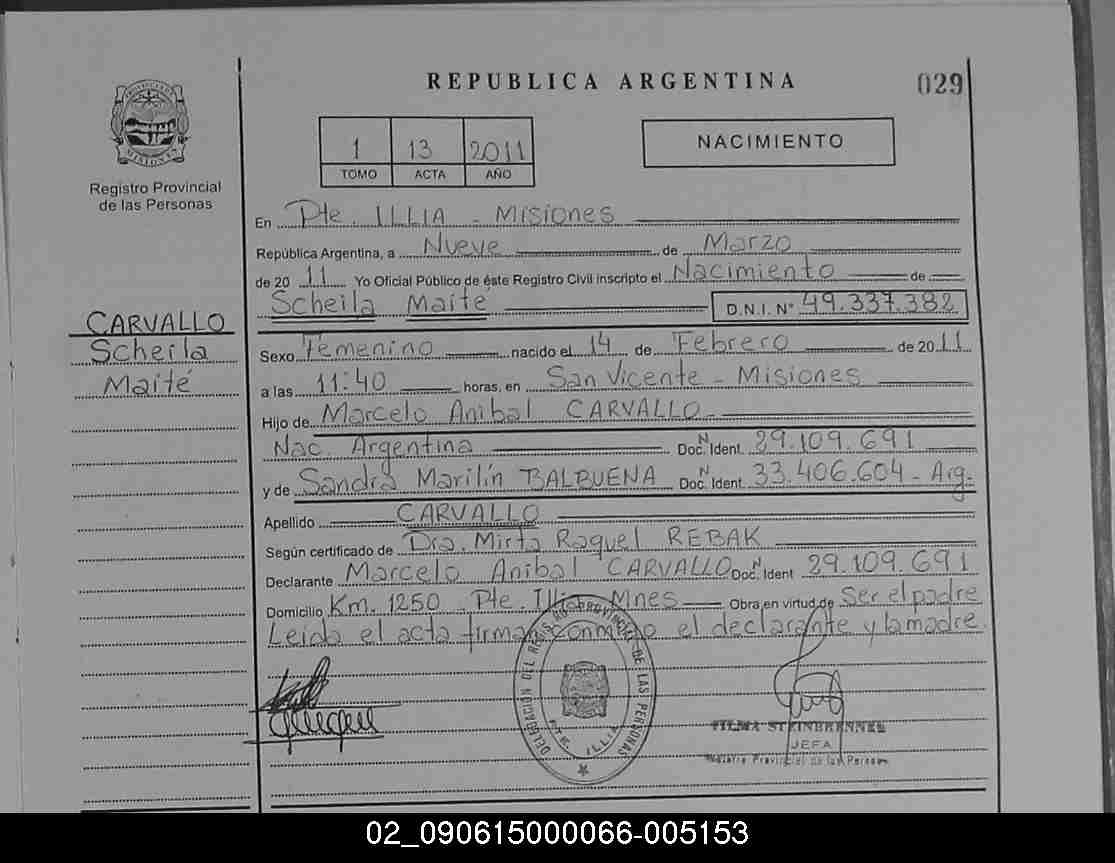 REPUBLICA ARGENTINA
029
PROVINCIA DE MISIONES
Registro Provincial
de las Personas
1 13 2011
TOMO ACTA AÑO
NACIMIENTO
En Pte. ILLIA - Misiones
República Argentina, a Nueve de Marzo
de 2011 Yo Oficial Público de éste Registro Civil inscripto el Nacimiento de
Scheila Maite D.N.I. Nº 49.337.382
CARVALLO
Scheila
Maité
Sexo Femenino nacido el 14 de Febrero de 2011
a las 11:40 horas, en San Vicente - Misiones
Hijo de Marcelo Anibal CARVALLO
Nac. Argentina Doc. N Ident. 29.109.691
y de Sandra Marilín BALBUENA Doc. N Ident. 33.406.604 - Arg.
Apellido CARVALLO
Según certificado de Dra. Mirta Raquel REBAK
Declarante Marcelo Anibal CARVALLO Doc. N Ident 29.109.691
Domicilio Km. 1250 - Pte. Illia - Mnes Obra en virtud de Ser el padre
Leída el acta firma conmigo el declarante y la madre.
DELEGACIÓN DEL REGISTRO PROVINCIAL DE LAS PERSONAS
PTE. ILLIA
STEINBRENNER
JEFA
Registro Provincial de las Personas
02_090615000066-005153